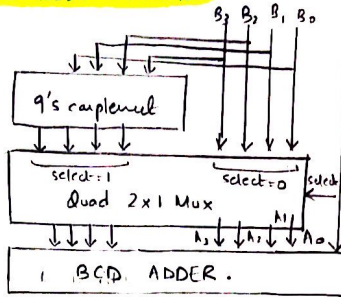 B3 B2 B1 B0
9's complement
select=1 select=0
select
Quad 2x1 Mux
A3 A2 A1 A0
BCD ADDER.